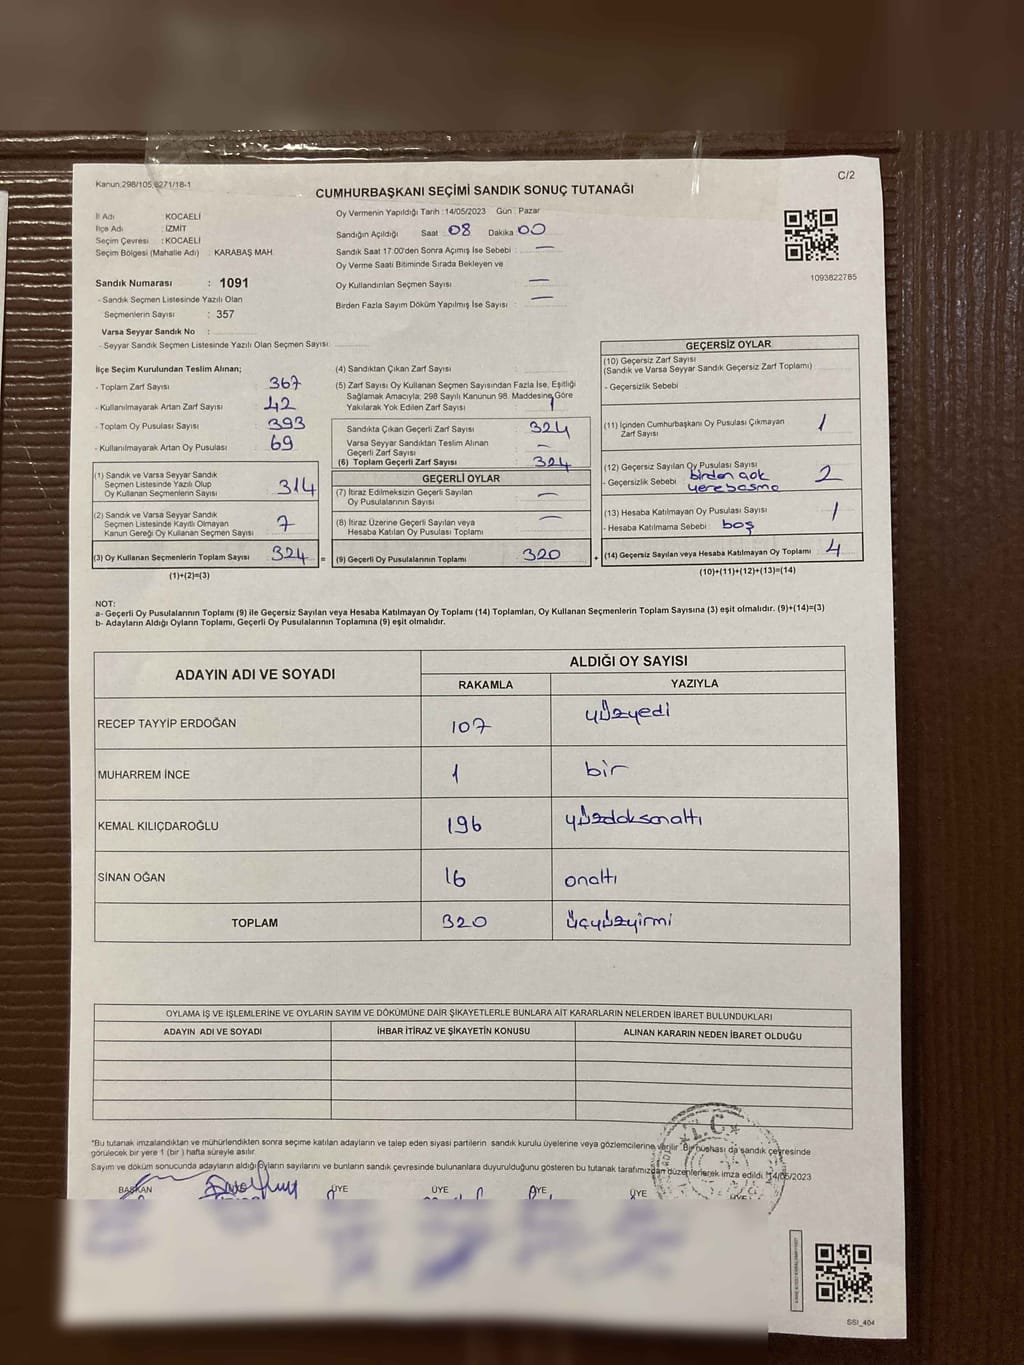 Kanun.298/105,6271/18-1
C/2
CUMHURBAŞKANI SEÇİMİ SANDIK SONUÇ TUTANAĞI
İl Adı KOCAELİ
İlçe Adı : İZMİT
Seçim Çevresi : KOCAELİ
Seçim Bölgesi (Mahalle Adı) : KARABAŞ MAH.
Sandık Numarası : 1091
- Sandık Seçmen Listesinde Yazılı Olan
Seçmenlerin Sayısı : 357
Varsa Seyyar Sandık No :
- Seyyar Sandık Seçmen Listesinde Yazılı Olan Seçmen Sayısı :
Oy Vermenin Yapıldığı Tarih : 14/05/2023 Gün : Pazar
Sandığın Açıldığı Saat : 08 Dakika : 00
Sandık Saat 17:00'den Sonra Açılmış İse Sebebi : —
Oy Verme Saati Bitiminde Sırada Bekleyen ve
Oy Kullandırılan Seçmen Sayısı : —
Birden Fazla Sayım Döküm Yapılmış İse Sayısı : —
1093822785
İlçe Seçim Kurulundan Teslim Alınan;
- Toplam Zarf Sayısı 367
- Kullanılmayarak Artan Zarf Sayısı 42
- Toplam Oy Pusulası Sayısı 393
- Kullanılmayarak Artan Oy Pusulası 69
(1) Sandık ve Varsa Seyyar Sandık
Seçmen Listesinde Yazılı Olup
Oy Kullanan Seçmenlerin Sayısı 314
(2) Sandık ve Varsa Seyyar Sandık
Seçmen Listesinde Kayıtlı Olmayan
Kanun Gereği Oy Kullanan Seçmen Sayısı 7
(3) Oy Kullanan Seçmenlerin Toplam Sayısı 324 =
(1)+(2)=(3)
(4) Sandıktan Çıkan Zarf Sayısı
(5) Zarf Sayısı Oy Kullanan Seçmen Sayısından Fazla İse, Eşitliği
Sağlamak Amacıyla, 298 Sayılı Kanunun 98. Maddesine Göre
Yakılarak Yok Edilen Zarf Sayısı 1
Sandıkta Çıkan Geçerli Zarf Sayısı 324
Varsa Seyyar Sandıktan Teslim Alınan
Geçerli Zarf Sayısı —
(6) Toplam Geçerli Zarf Sayısı 324
GEÇERLİ OYLAR
(7) İtiraz Edilmeksizin Geçerli Sayılan
Oy Pusulalarının Sayısı —
(8) İtiraz Üzerine Geçerli Sayılan veya
Hesaba Katılan Oy Pusulası Toplamı —
(9) Geçerli Oy Pusulalarının Toplamı 320 +
GEÇERSİZ OYLAR
(10) Geçersiz Zarf Sayısı
(Sandık ve Varsa Seyyar Sandık Geçersiz Zarf Toplamı)
- Geçersizlik Sebebi
(11) İçinden Cumhurbaşkanı Oy Pusulası Çıkmayan
Zarf Sayısı 1
(12) Geçersiz Sayılan Oy Pusulası Sayısı 2
- Geçersizlik Sebebi birden çok
yere basma
(13) Hesaba Katılmayan Oy Pusulası Sayısı 1
- Hesaba Katılmama Sebebi : boş
(14) Geçersiz Sayılan veya Hesaba Katılmayan Oy Toplamı 4
(10)+(11)+(12)+(13)=(14)
NOT:
a- Geçerli Oy Pusulalarının Toplamı (9) ile Geçersiz Sayılan veya Hesaba Katılmayan Oy Toplamı (14) Toplamları, Oy Kullanan Seçmenlerin Toplam Sayısına (3) eşit olmalıdır. (9)+(14)=(3)
b- Adayların Aldığı Oyların Toplamı, Geçerli Oy Pusulalarının Toplamına (9) eşit olmalıdır.
ADAYIN ADI VE SOYADI
ALDIĞI OY SAYISI
RAKAMLA YAZIYLA
RECEP TAYYİP ERDOĞAN 107 yüzyedi
MUHARREM İNCE 1 bir
KEMAL KILIÇDAROĞLU 196 yüzdoksanaltı
SİNAN OĞAN 16 onaltı
TOPLAM 320 üçyüzyirmi
OYLAMA İŞ VE İŞLEMLERİNE VE OYLARIN SAYIM VE DÖKÜMÜNE DAİR ŞİKAYETLERLE BUNLARA AİT KARARLARIN NELERDEN İBARET BULUNDUKLARI
ADAYIN ADI VE SOYADI İHBAR İTİRAZ VE ŞİKAYETİN KONUSU ALINAN KARARIN NEDEN İBARET OLDUĞU
*Bu tutanak imzalandıktan ve mühürlendikten sonra seçime katılan adayların ve talep eden siyasi partilerin sandık kurulu üyelerine veya gözlemcilerine verilir. Bir nüshası da sandık çevresinde
görülecek bir yere 1 (bir) hafta süreyle asılır.
Sayım ve döküm sonucunda adayların aldığı oyların sayılarını ve bunların sandık çevresinde bulunanlara duyurulduğunu gösteren bu tutanak tarafımızdan düzenlenerek imza edildi. 14/05/2023
BAŞKAN ÜYE ÜYE ÜYE ÜYE ÜYE
T.C.
SSI_404